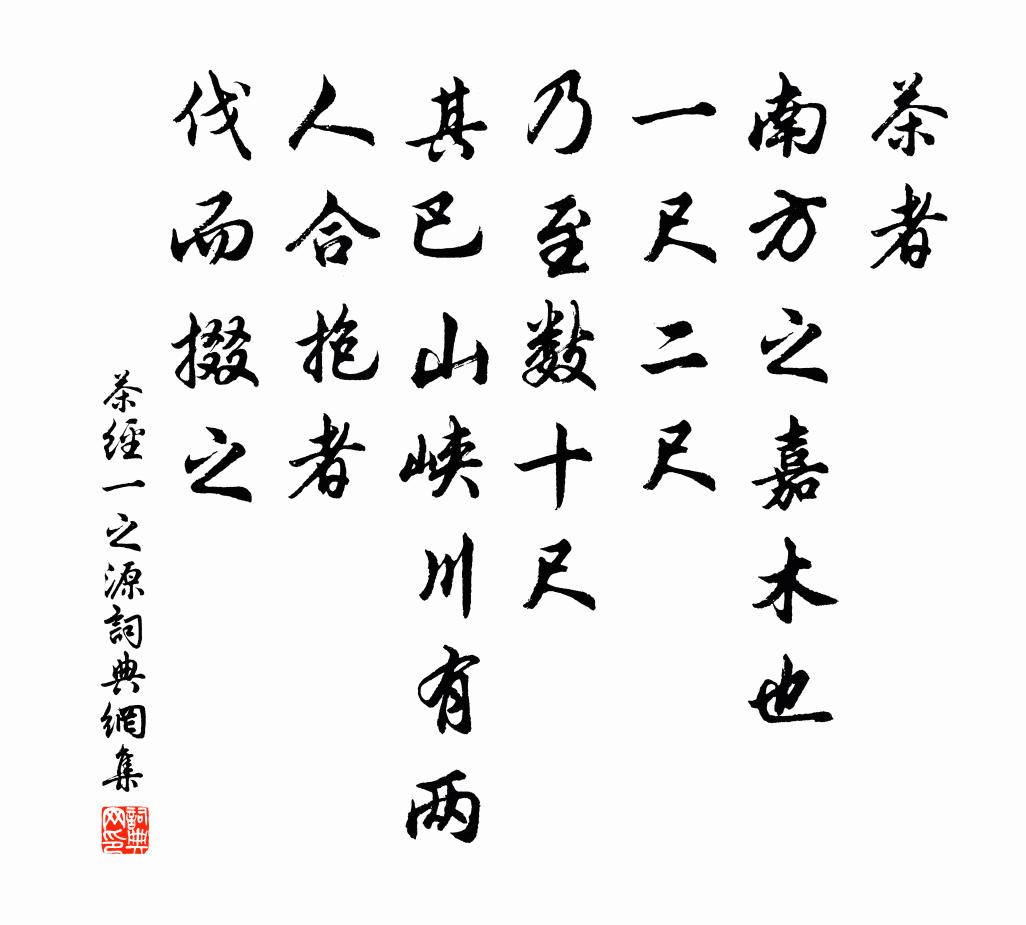 茶者
南方之嘉木也
一尺二尺
乃至数十尺
其巴山峡川有两
人合抱者
伐而掇之
茶經一之源詞典網集
詞典网印